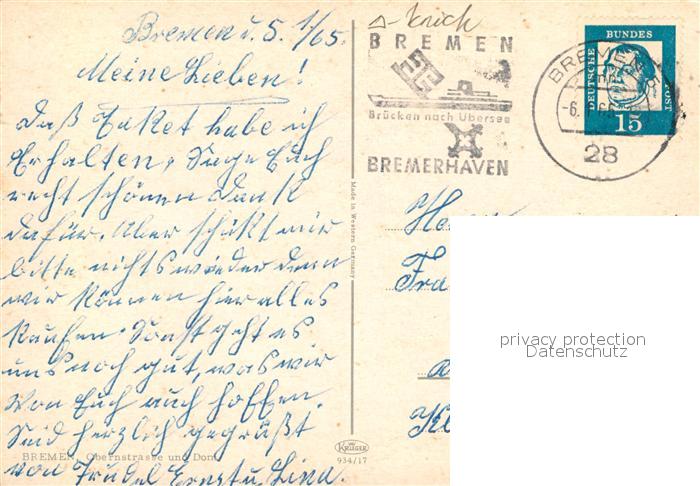 Bremen d. 5. 1/65.
Meine Lieben!
Daß Paket habe ich
Erhalten, Sage Euch
recht schönen Dank
dafür. Aber schikt mir
bitte nichts wieder denn
wir können hier alles
Kaufen. Sonst geht es
uns noch gut, was wir
Von Euch auch hoffen.
Seid herzlich gegrüßt
von Trudel Ernst u. Lina.
BREMEN, Obernstrasse und Dom
Made in Western Germany
KRÜGER
934/17
BREMEN
Brücken nach Übersee
BREMERHAVEN
BREMEN
-6. 1. 65
28
DEUTSCHE BUNDESPOST
15
privacy protection
Datenschutz